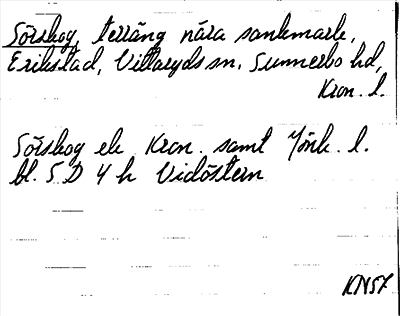 Sörskog, terräng nära sankmark,
Erikstad, Vittaryds sn, Sunnerbo hd,
Kron. l.
Sörskog ek Kron. samt Jönk. l.
bl. 5 D 4 h Vidöstern
KN57